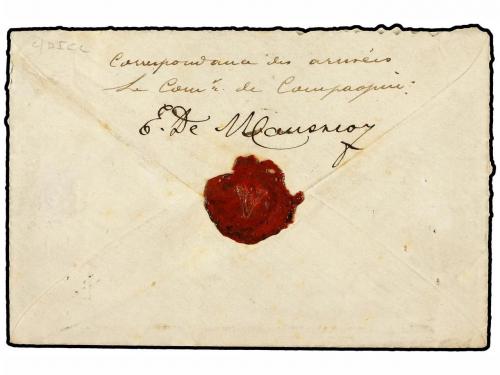 c/DICL
Correspondance des armées
Le Com^r. de Compagnie
E. De